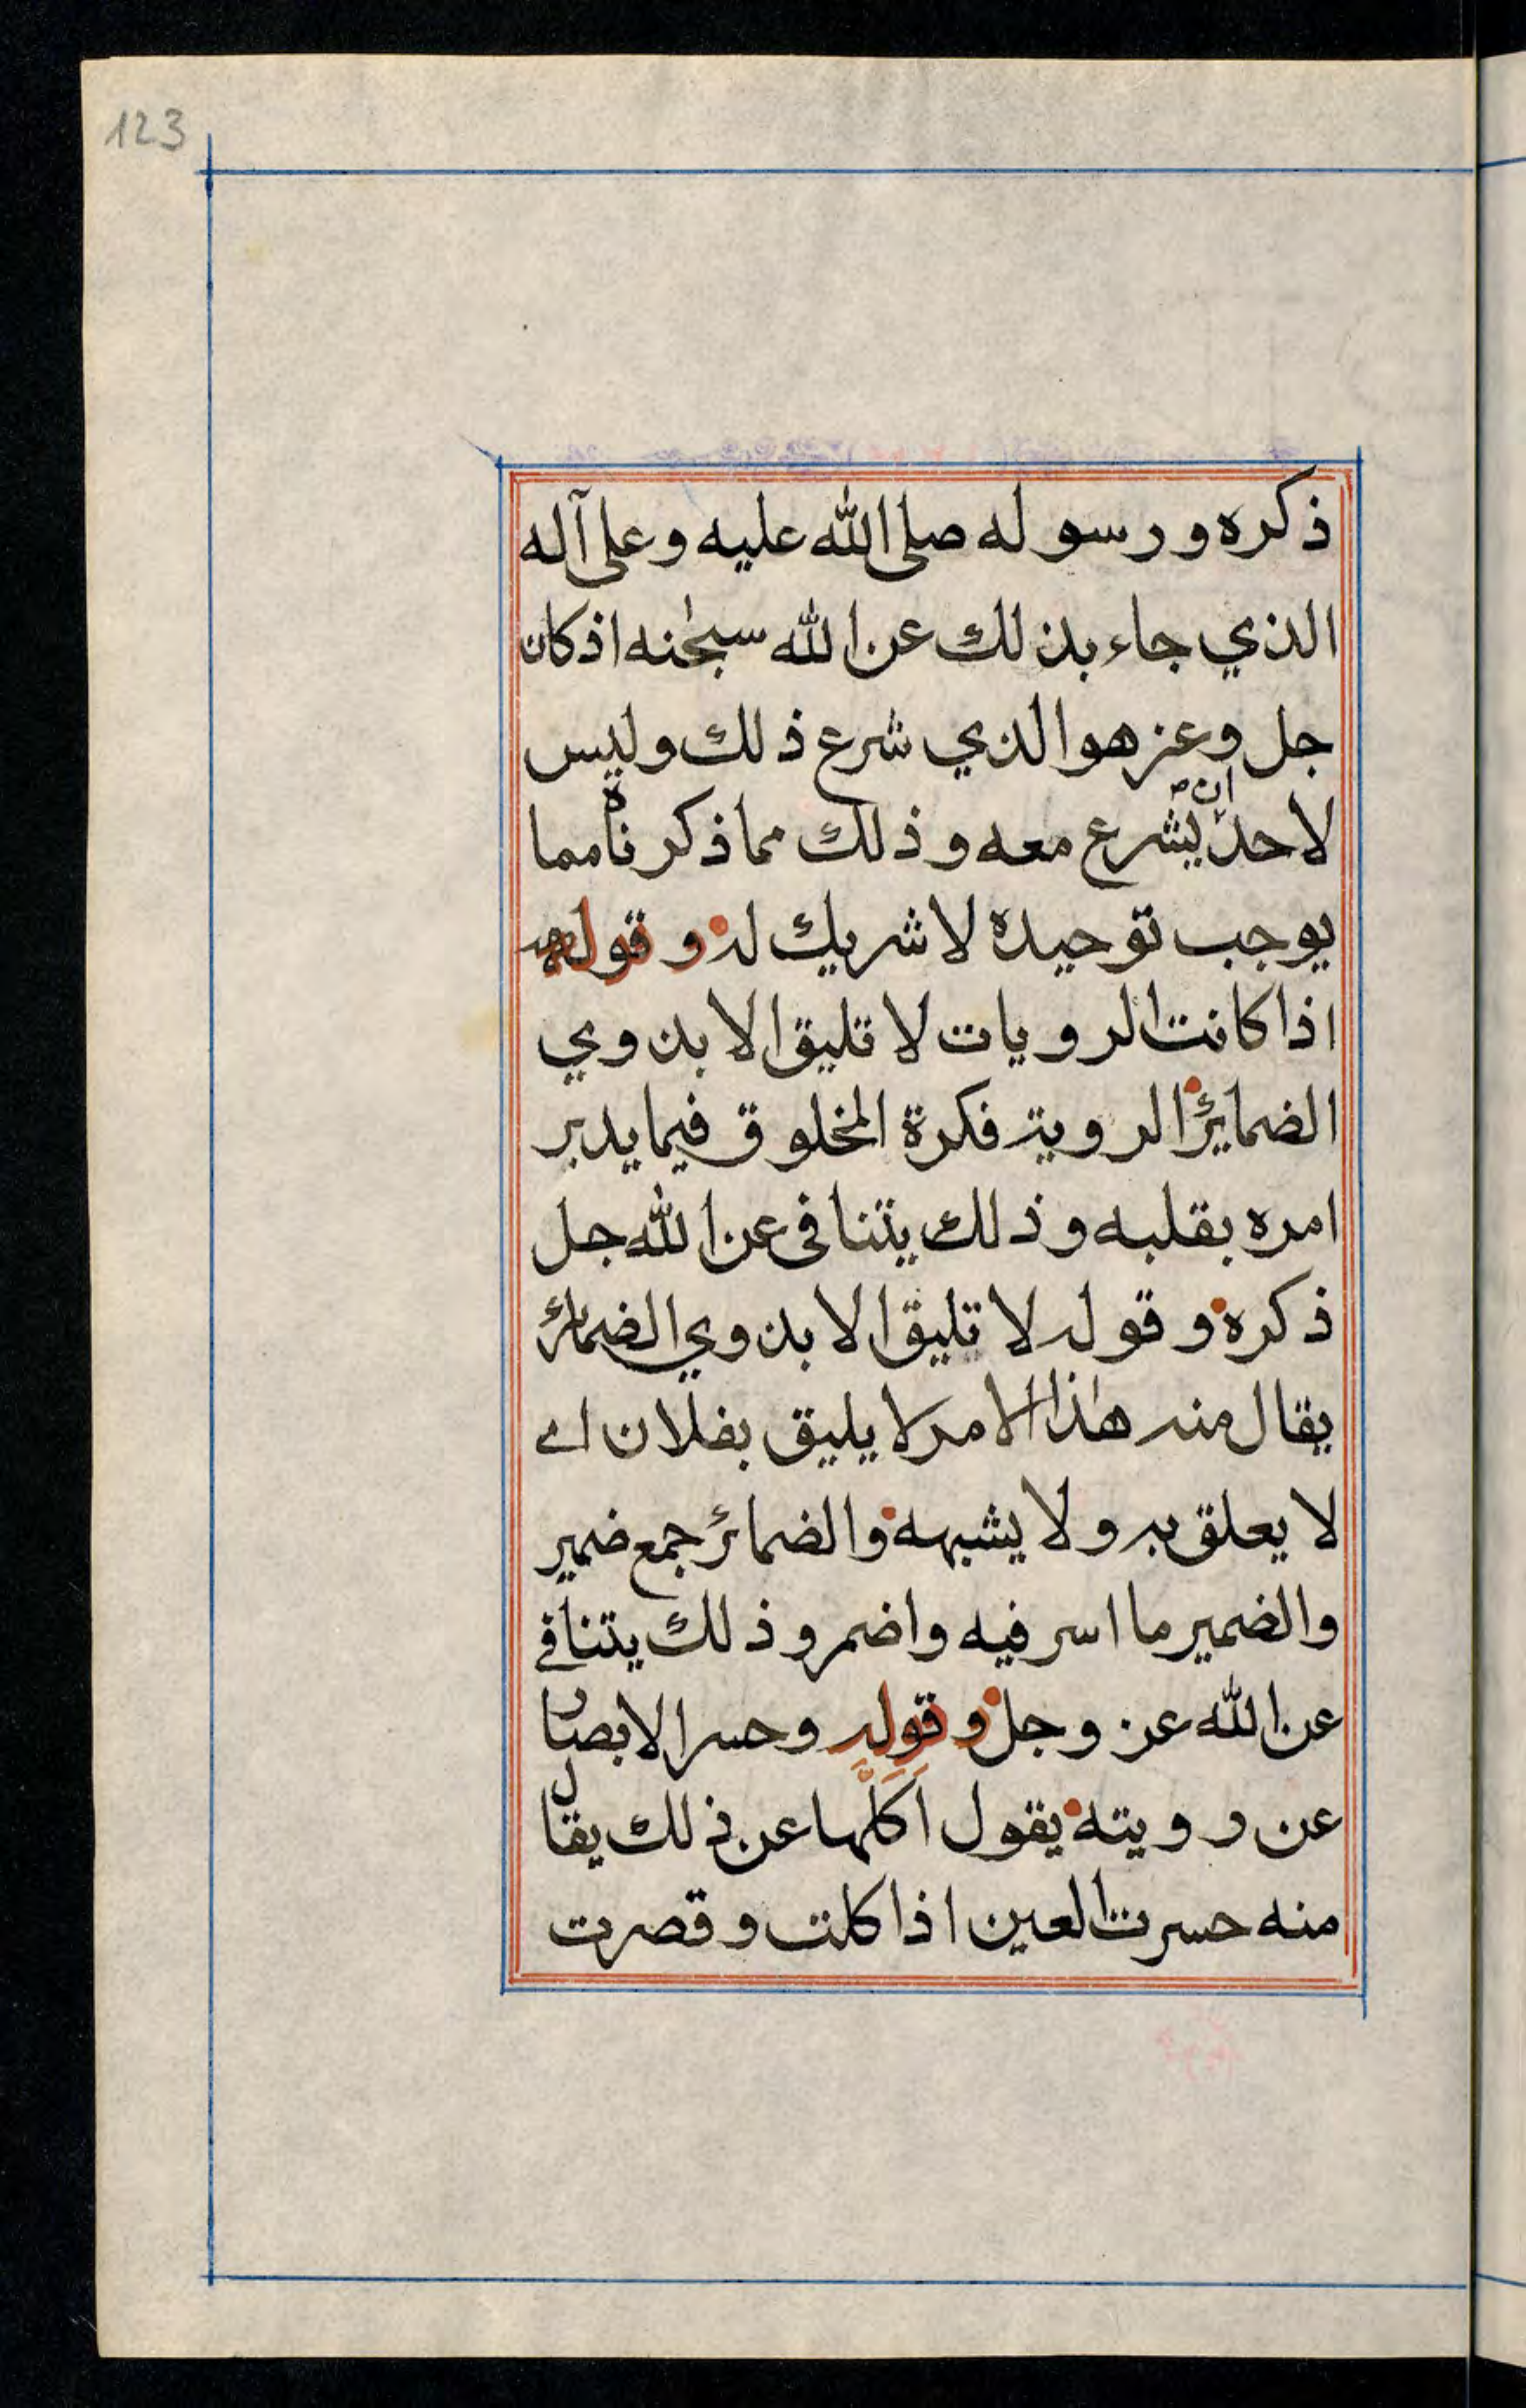 123
ذكره ورسوله صلى الله عليه وعلى آله
الذي جاء بذلك عن الله سبحٰنه اذ كان
جل وعز هو الذي شرع ذلك وليس
لاحد ان يشرع معه وذلك مما ذكرناه مما
يوجب توحيده لا شريك له وقوله
اذا كانت الرويات لا تليق الا بذوي
الضمائر الروية فكرة المخلوق فيما يدبر
امره بقلبه وذلك يتنافى عن الله جل
ذكره وقوله لا تليق الا بذوي الضمائر
يقال منه هٰذا الامر لا يليق بفلان اے
لا يعلق به ولا يشبهه والضمائر جمع ضمير
والضمير ما اسر فيه واضمر وذلك يتنافى
عن الله عز وجل وقوله وحسر الابصار
عن رويته يقول اكلها عن ذلك يقال
منه حسرت العين اذا كلت وقصرت